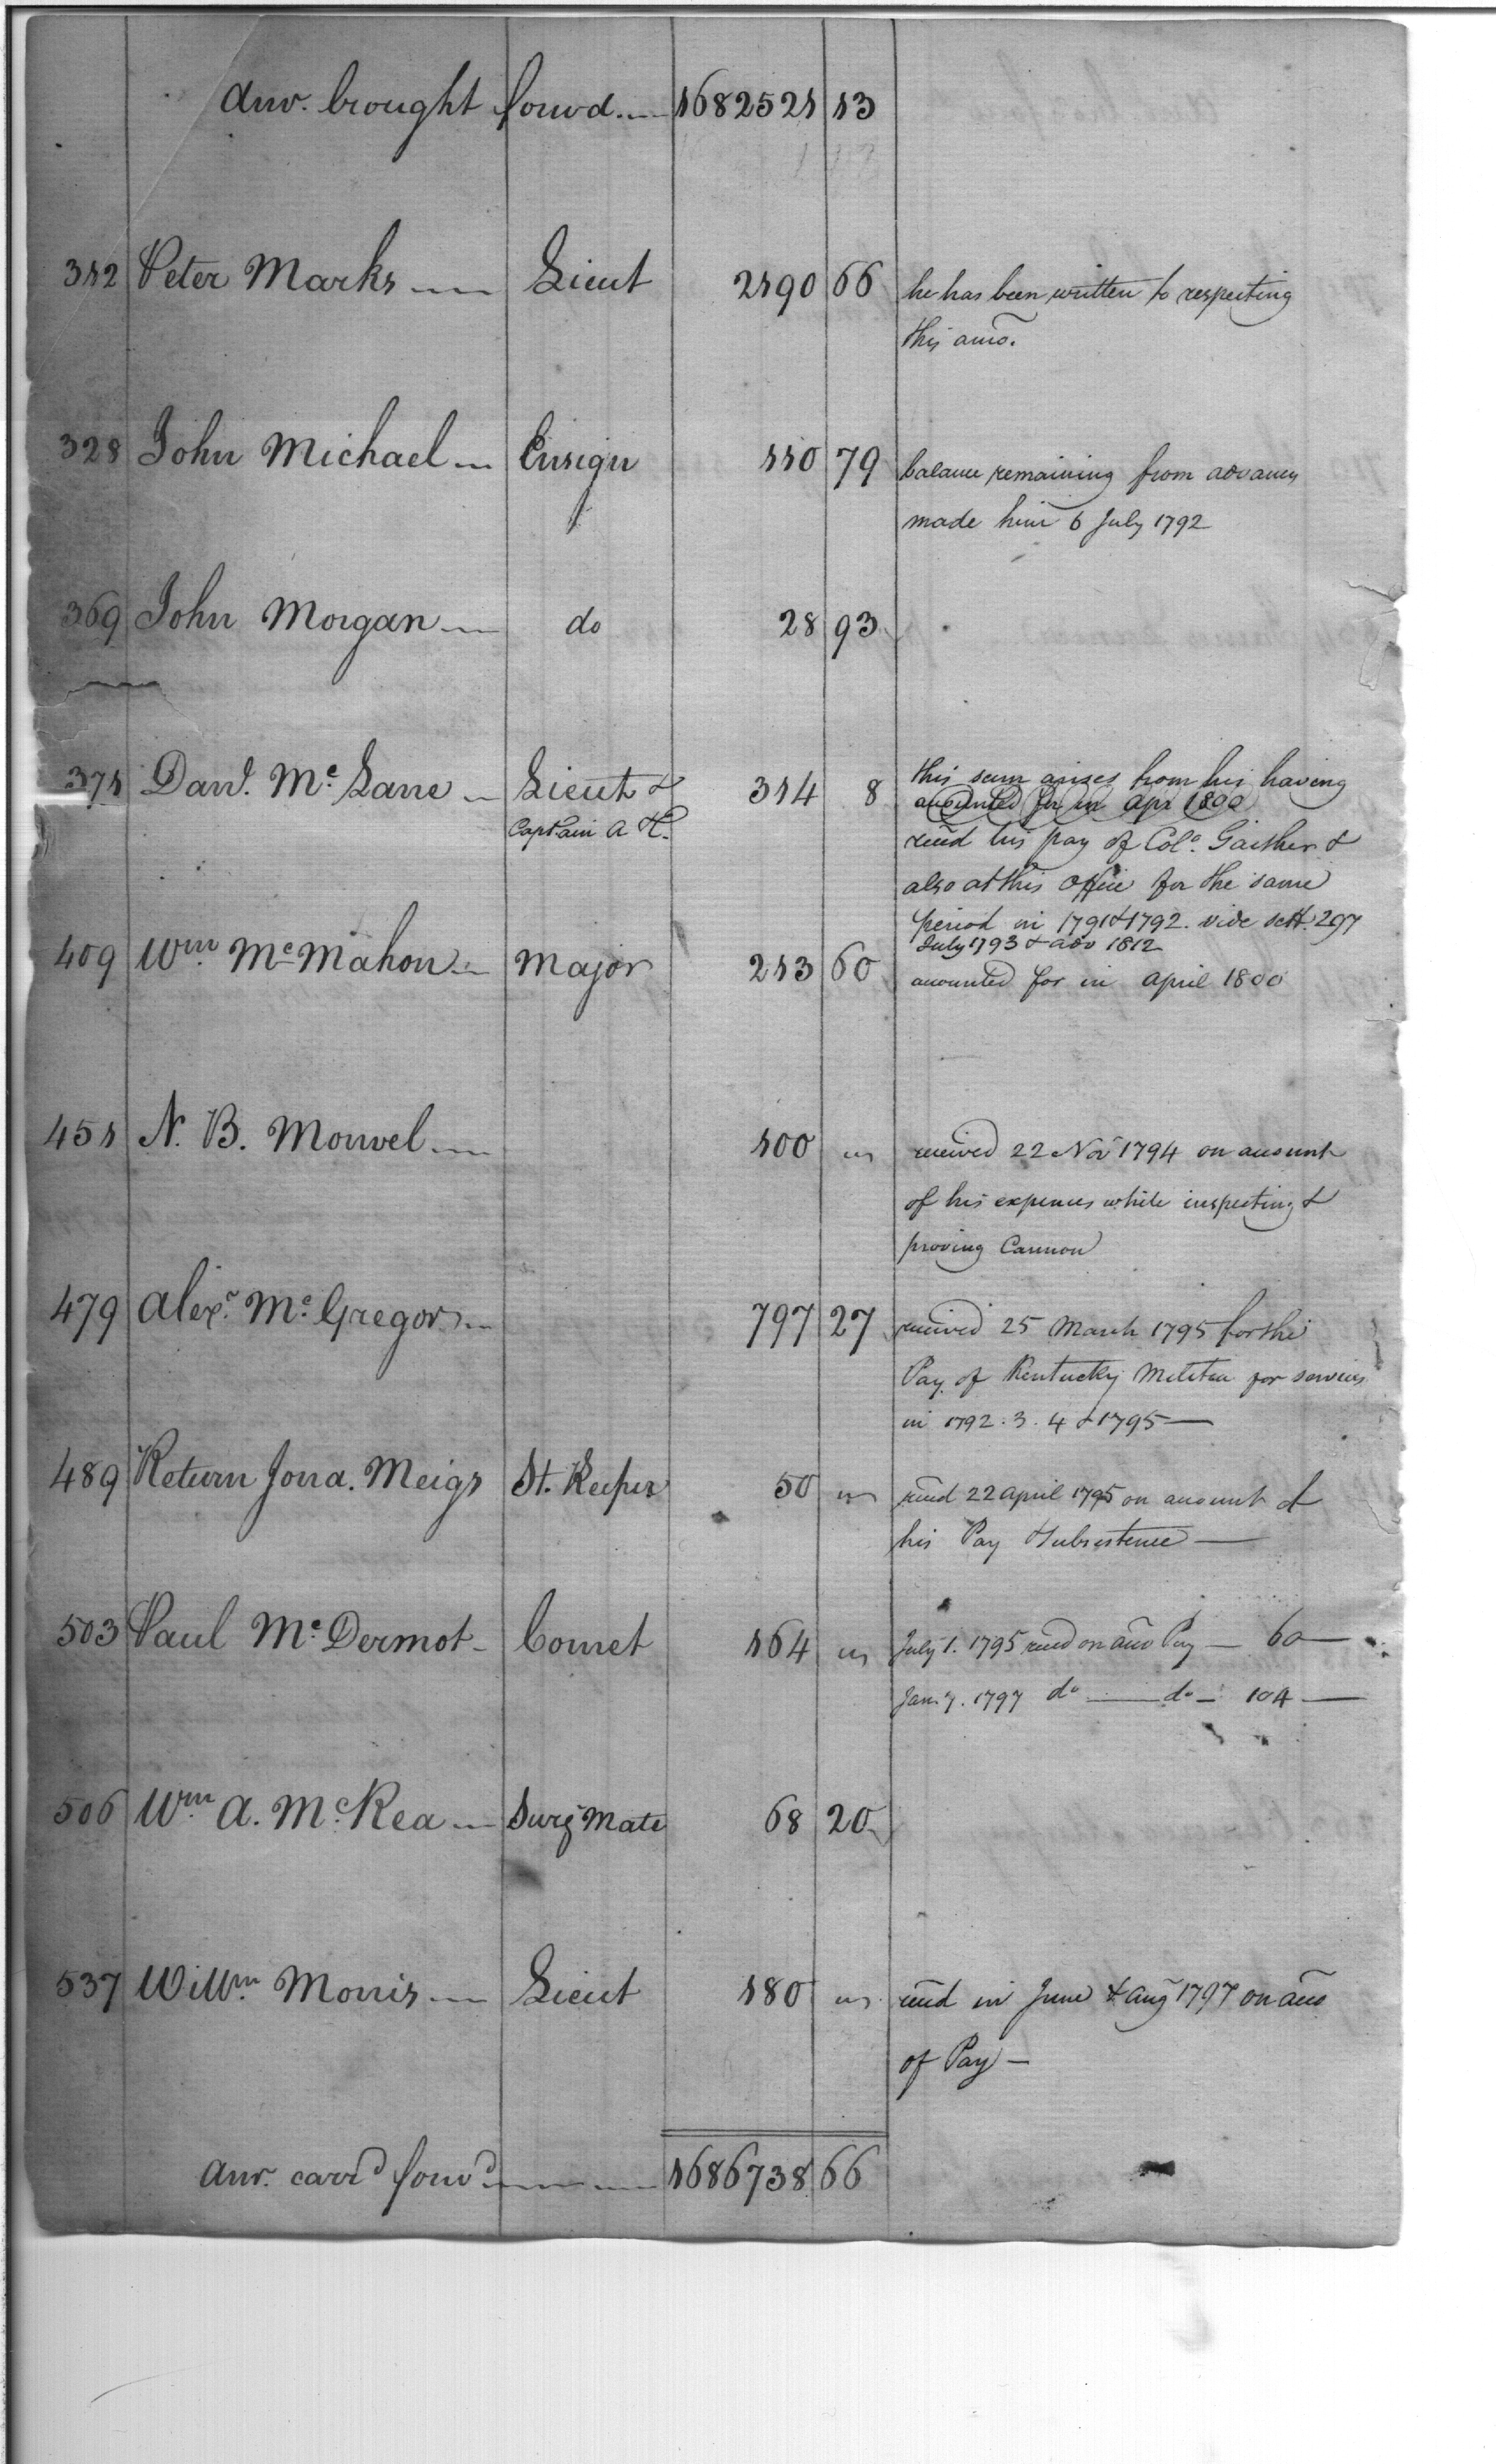 Amo. brought forwd. 1682521 13
312 Peter Marks Lieut 2190 66 he has been written to respecting
this amo.
328 John Michael Ensign 110 79 balance remaining from advances
made him 6 July 1792
369 John Morgan do 28 93
371 Danl. Mc Lane Lieut & 314 8 this sum arises from his having
Captain A H. accounted for in Apr 1800
recd his pay of Colo. Gaither &
also at this Office for the same
period in 1791 & 1792. vide sett. 297
July 1793 & adv 1812
409 Wm. McMahon Major 213 60 accounted for in April 1800
451 N. B. Mouvel 100 received 22 Nov 1794 on account
of his expences while inspecting &
proving Cannon
479 Alexr. Mc. Gregor 797 27 received 25 March 1795 for the
Pay of Kentucky Militia for services
in 1792. 3. 4 & 1795
489 Return Jona. Meigs St. Keeper 50 recd 22 April 1795 on account of
his Pay & Subsistence
503 Paul Mc. Dermot Cornet 164 July 1. 1795 recd on acco Pay — 60
Jan. 7. 1797 do — do — 104
506 Wm A. McRea Surgs Mate 68 20
537 Willm. Morris Lieut 180 recd in June & Aug 1797 on acco
of Pay
Amo. carrd forwd 1686738 66